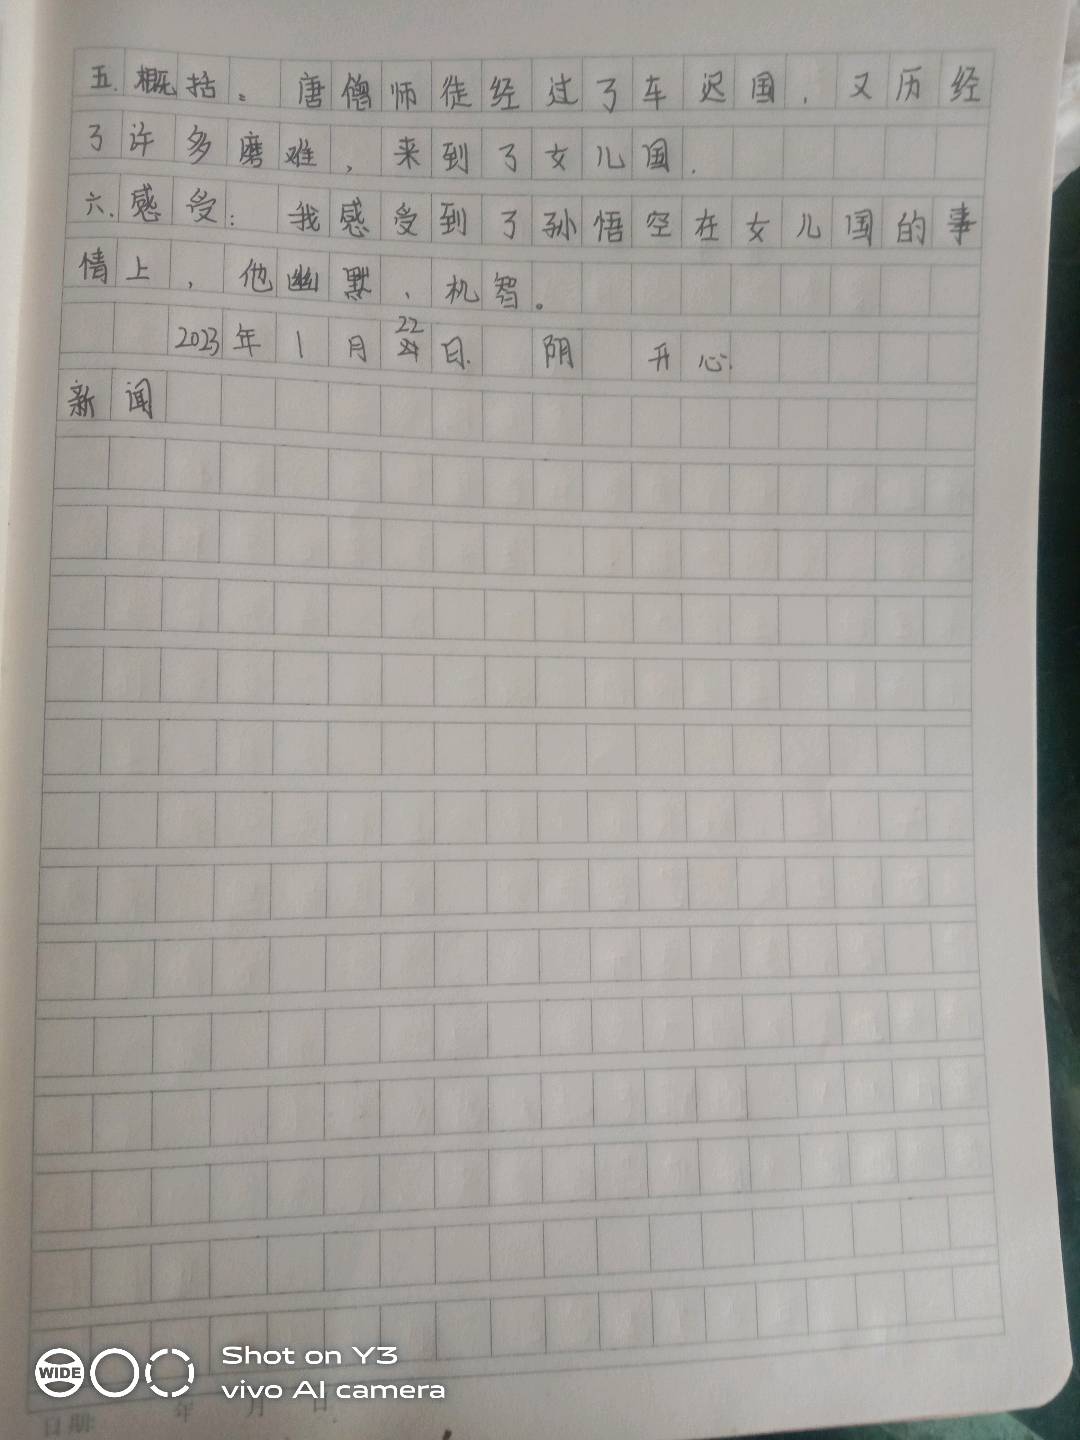 五.概括。 唐僧师徒经过了车迟国,又历经
了许多磨难,来到了女儿国.
六.感受: 我感受到了孙悟空在女儿国的事
情上,他幽默、机智。
2023年1月22日. 阴 开心.
新闻
WIDE
Shot on Y3
vivo AI camera
日期: 年 月 日